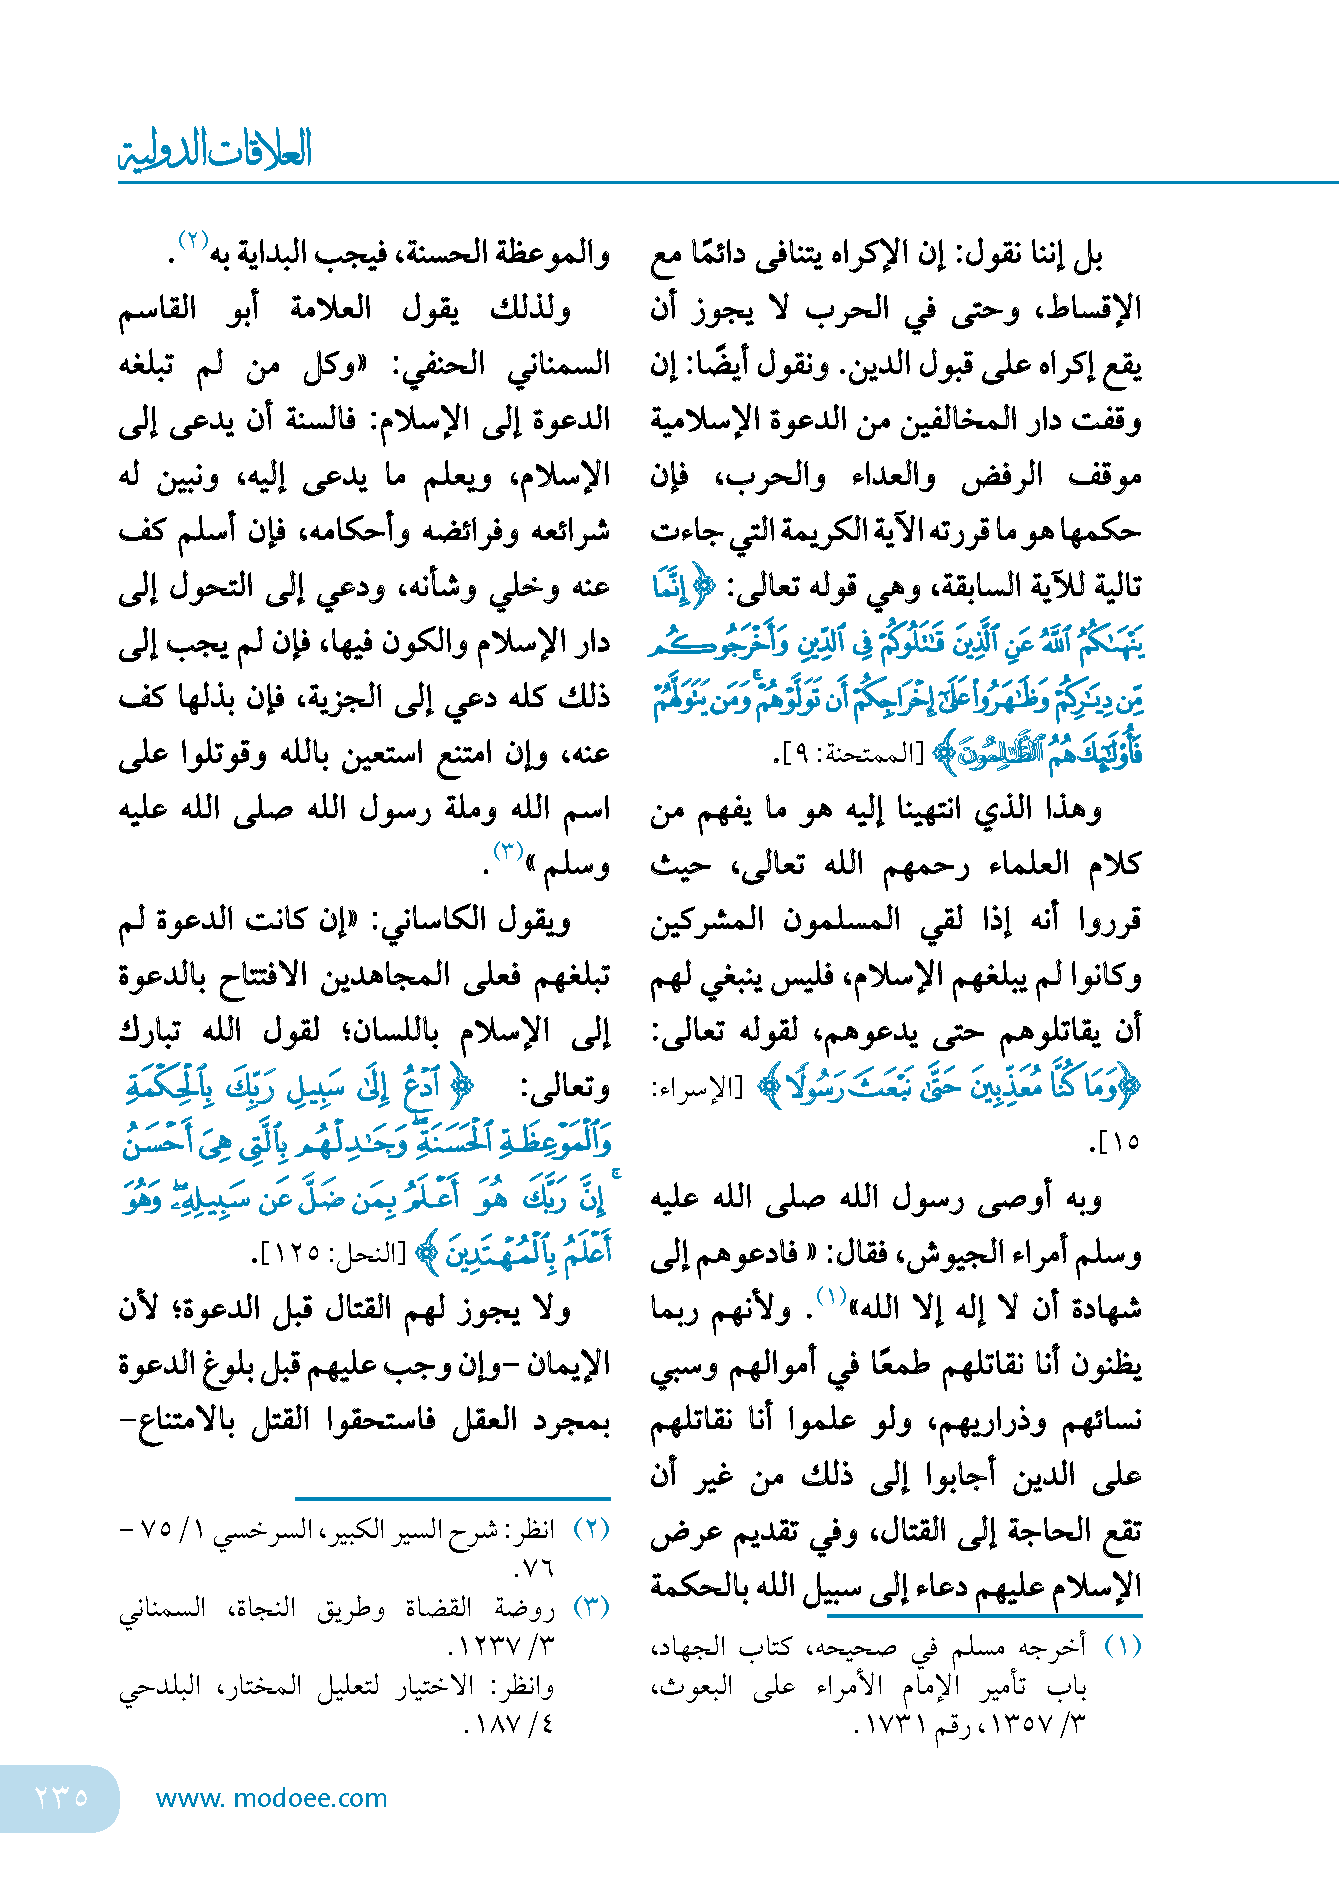 العلاقات الدولية
بل إننا نقول: إن الإكراه يتنافى دائمًا مع
الإقساط، وحتى في الحرب لا يجوز أن
يقع إكراه على قبول الدين. ونقول أيضًا: إن
وقفت دار المخالفين من الدعوة الإسلامية
موقف الرفض والعداء والحرب، فإن
حكمها هو ما قررته الآية الكريمة التي جاءت
تالية للآية السابقة، وهي قوله تعالى: ﴿إِنَّمَا
يَنْهَىٰكُمُ ٱللَّهُ عَنِ ٱلَّذِينَ قَٰتَلُوكُمْ فِى ٱلدِّينِ وَأَخْرَجُوكُم
مِّن دِيَٰرِكُمْ وَظَٰهَرُوا۟ عَلَىٰٓ إِخْرَاجِكُمْ أَن تَوَلَّوْهُمْ ۚ وَمَن يَتَوَلَّهُمْ
فَأُو۟لَٰٓئِكَ هُمُ ٱلظَّٰلِمُونَ﴾ [الممتحنة: ٩].
وهذا الذي انتهينا إليه هو ما يفهم من
كلام العلماء رحمهم الله تعالى، حيث
قرروا أنه إذا لقي المسلمون المشركين
وكانوا لم يبلغهم الإسلام، فليس ينبغي لهم
أن يقاتلوهم حتى يدعوهم، لقوله تعالى:
﴿وَمَا كُنَّا مُعَذِّبِينَ حَتَّىٰ نَبْعَثَ رَسُولًا﴾ [الإسراء:
١٥].
وبه أوصى رسول الله صلى الله عليه
وسلم أمراء الجيوش، فقال: «فادعوهم إلى
شهادة أن لا إله إلا الله»(١). ولأنهم ربما
يظنون أنا نقاتلهم طمعًا في أموالهم وسبي
نسائهم وذراريهم، ولو علموا أنا نقاتلهم
على الدين أجابوا إلى ذلك من غير أن
تقع الحاجة إلى القتال، وفي تقديم عرض
الإسلام عليهم دعاء إلى سبيل الله بالحكمة
(١) أخرجه مسلم في صحيحه، كتاب الجهاد،
باب تأمير الإمام الأمراء على البعوث،
٣/ ١٣٥٧، رقم ١٧٣١.
والموعظة الحسنة، فيجب البداية به(٢).
ولذلك يقول العلامة أبو القاسم
السمناني الحنفي: «وكل من لم تبلغه
الدعوة إلى الإسلام: فالسنة أن يدعى إلى
الإسلام، ويعلم ما يدعى إليه، ونبين له
شرائعه وفرائضه وأحكامه، فإن أسلم كف
عنه وخلي وشأنه، ودعي إلى التحول إلى
دار الإسلام والكون فيها، فإن لم يجب إلى
ذلك كله دعي إلى الجزية، فإن بذلها كف
عنه، وإن امتنع استعين بالله وقوتلوا على
اسم الله وملة رسول الله صلى الله عليه
وسلم»(٣).
ويقول الكاساني: «إن كانت الدعوة لم
تبلغهم فعلى المجاهدين الافتتاح بالدعوة
إلى الإسلام باللسان؛ لقول الله تبارك
وتعالى: ﴿ٱدْعُ إِلَىٰ سَبِيلِ رَبِّكَ بِٱلْحِكْمَةِ
وَٱلْمَوْعِظَةِ ٱلْحَسَنَةِ ۖ وَجَٰدِلْهُم بِٱلَّتِى هِىَ أَحْسَنُ
ۚ إِنَّ رَبَّكَ هُوَ أَعْلَمُ بِمَن ضَلَّ عَن سَبِيلِهِۦ ۖ وَهُوَ
أَعْلَمُ بِٱلْمُهْتَدِينَ﴾ [النحل: ١٢٥].
ولا يجوز لهم القتال قبل الدعوة؛ لأن
الإيمان -وإن وجب عليهم قبل بلوغ الدعوة
بمجرد العقل فاستحقوا القتل بالامتناع-
(٢) انظر: شرح السير الكبير، السرخسي ١/ ٧٥ -
٧٦.
(٣) روضة القضاة وطريق النجاة، السمناني
٣/ ١٢٣٧.
وانظر: الاختيار لتعليل المختار، البلدحي
٤/ ١٨٧.
٢٣٥
www. modoee.com